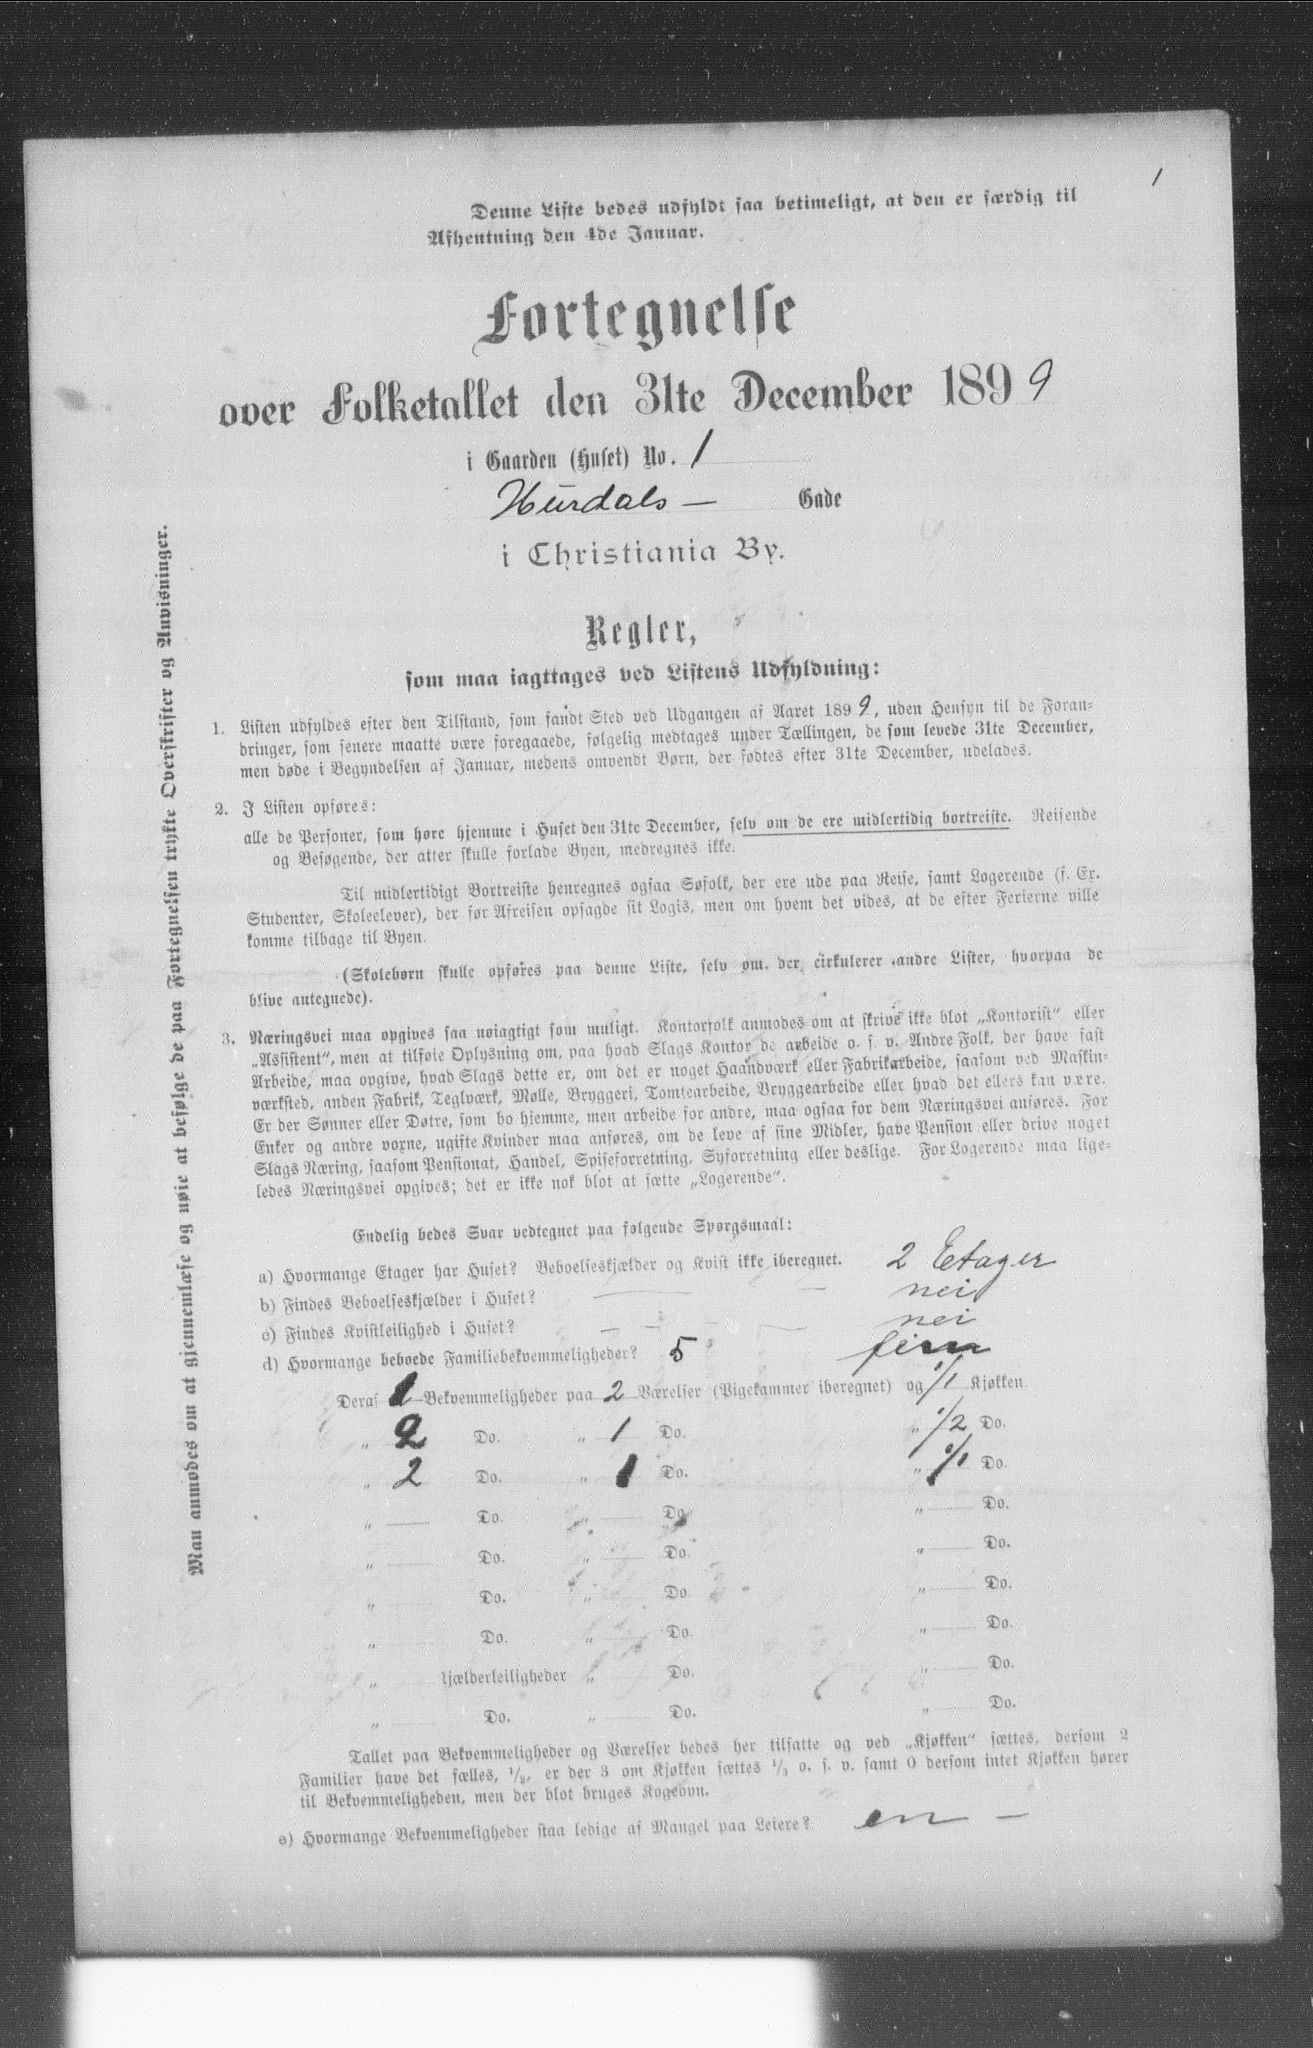 1
Denne Liste bedes udfyldt saa betimeligt, at den er færdig til
Afhentning den 4de Januar.
Fortegnelse
over Folketallet den 31te December 1899
i Gaarden (Huset) No. 1
Hurdals – Gade
i Christiania By.
Regler,
som maa iagttages ved Listens Udfyldning:
1. Listen udfyldes efter den Tilstand, som fandt Sted ved Udgangen af Aaret 1899, uden Hensyn til de Foran-
dringer, som senere maatte være foregaaede, følgelig medtages under Tællingen, de som levede 31te December,
men døde i Begyndelsen af Januar, medens omvendt Børn, der fødtes efter 31te December, udelades.
2. I Listen opføres:
alle de Personer, som høre hjemme i Huset den 31te December, selv om de ere midlertidig bortreiste. Reisende
og Besøgende, der atter skulle forlade Byen, medregnes ikke.
Til midlertidigt Bortreiste henregnes ogsaa Søfolk, der ere ude paa Reise, samt Logerende (f. Ex.
Studenter, Skoleelever), der før Afreisen opsagde sit Logis, men om hvem det vides, at de efter Ferierne ville
komme tilbage til Byen.
(Skolebørn skulle opføres paa denne Liste, selv om der cirkulerer andre Lister, hvorpaa de
blive antegnede).
3. Næringsvei maa opgives saa nøiagtigt som muligt. Kontorfolk anmodes om at skrive ikke blot „Kontorist“ eller
„Assistent“, men at tilføie Oplysning om, paa hvad Slags Kontor de arbeide o. s. v. Andre Folk, der have fast
Arbeide, maa opgive, hvad Slags dette er, om det er noget Haandværk eller Fabrikarbeide, saasom ved Maskin-
værksted, anden Fabrik, Teglværk, Mølle, Bryggeri, Tomtearbeide, Bryggearbeide eller hvad det ellers kan være.
Er der Sønner eller Døtre, som bo hjemme, men arbeide for andre, maa ogsaa for dem Næringsvei anføres. For
Enker og andre voxne, ugifte Kvinder maa anføres, om de leve af sine Midler, have Pension eller drive noget
Slags Næring, saasom Pensionat, Handel, Spiseforretning, Syforretning eller deslige. For Logerende maa lige-
ledes Næringsvei opgives; det er ikke nok blot at sætte „Logerende“.
Endelig bedes Svar vedtegnet paa følgende Spørgsmaal:
a) Hvormange Etager har Huset? Beboelseskjælder og Kvist ikke iberegnet. 2 Etager
b) Findes Beboelseskjælder i Huset? nei
c) Findes Kvistleilighed i Huset? nei
d) Hvormange beboede Familiebekvemmeligheder? 5 fem
Deraf 1 Bekvemmeligheder paa 2 Værelser (Pigekammer iberegnet) og 1/1 Kjøkken
„ 2 Do. „ 1 Do. „ 1/2 Do.
„ 2 Do. „ 1 Do. „ 1/1 Do.
„ Do. „ Do. „ Do.
„ Do. „ Do. „ Do.
„ Do. „ Do. „ Do.
„ Do. „ Do. „ Do.
„ Kjælderleiligheder „ Do. „ Do.
„ Do. „ Do. „ Do.
Tallet paa Bekvemmeligheder og Værelser bedes her tilsatte og ved „Kjøkken“ sættes, dersom 2
Familier have det fælles, 1/2, er der 3 om Kjøkken sættes 1/3 o. s. v. samt 0 dersom intet Kjøkken hører
til Bekvemmeligheden, men der blot bruges Kogeovn.
e) Hvormange Bekvemmeligheder staa ledige af Mangel paa Leiere? en –
Man anmodes om at gjennemlæse og nøie at befølge de paa Fortegnelsen trykte Overskrifter og Anvisninger.